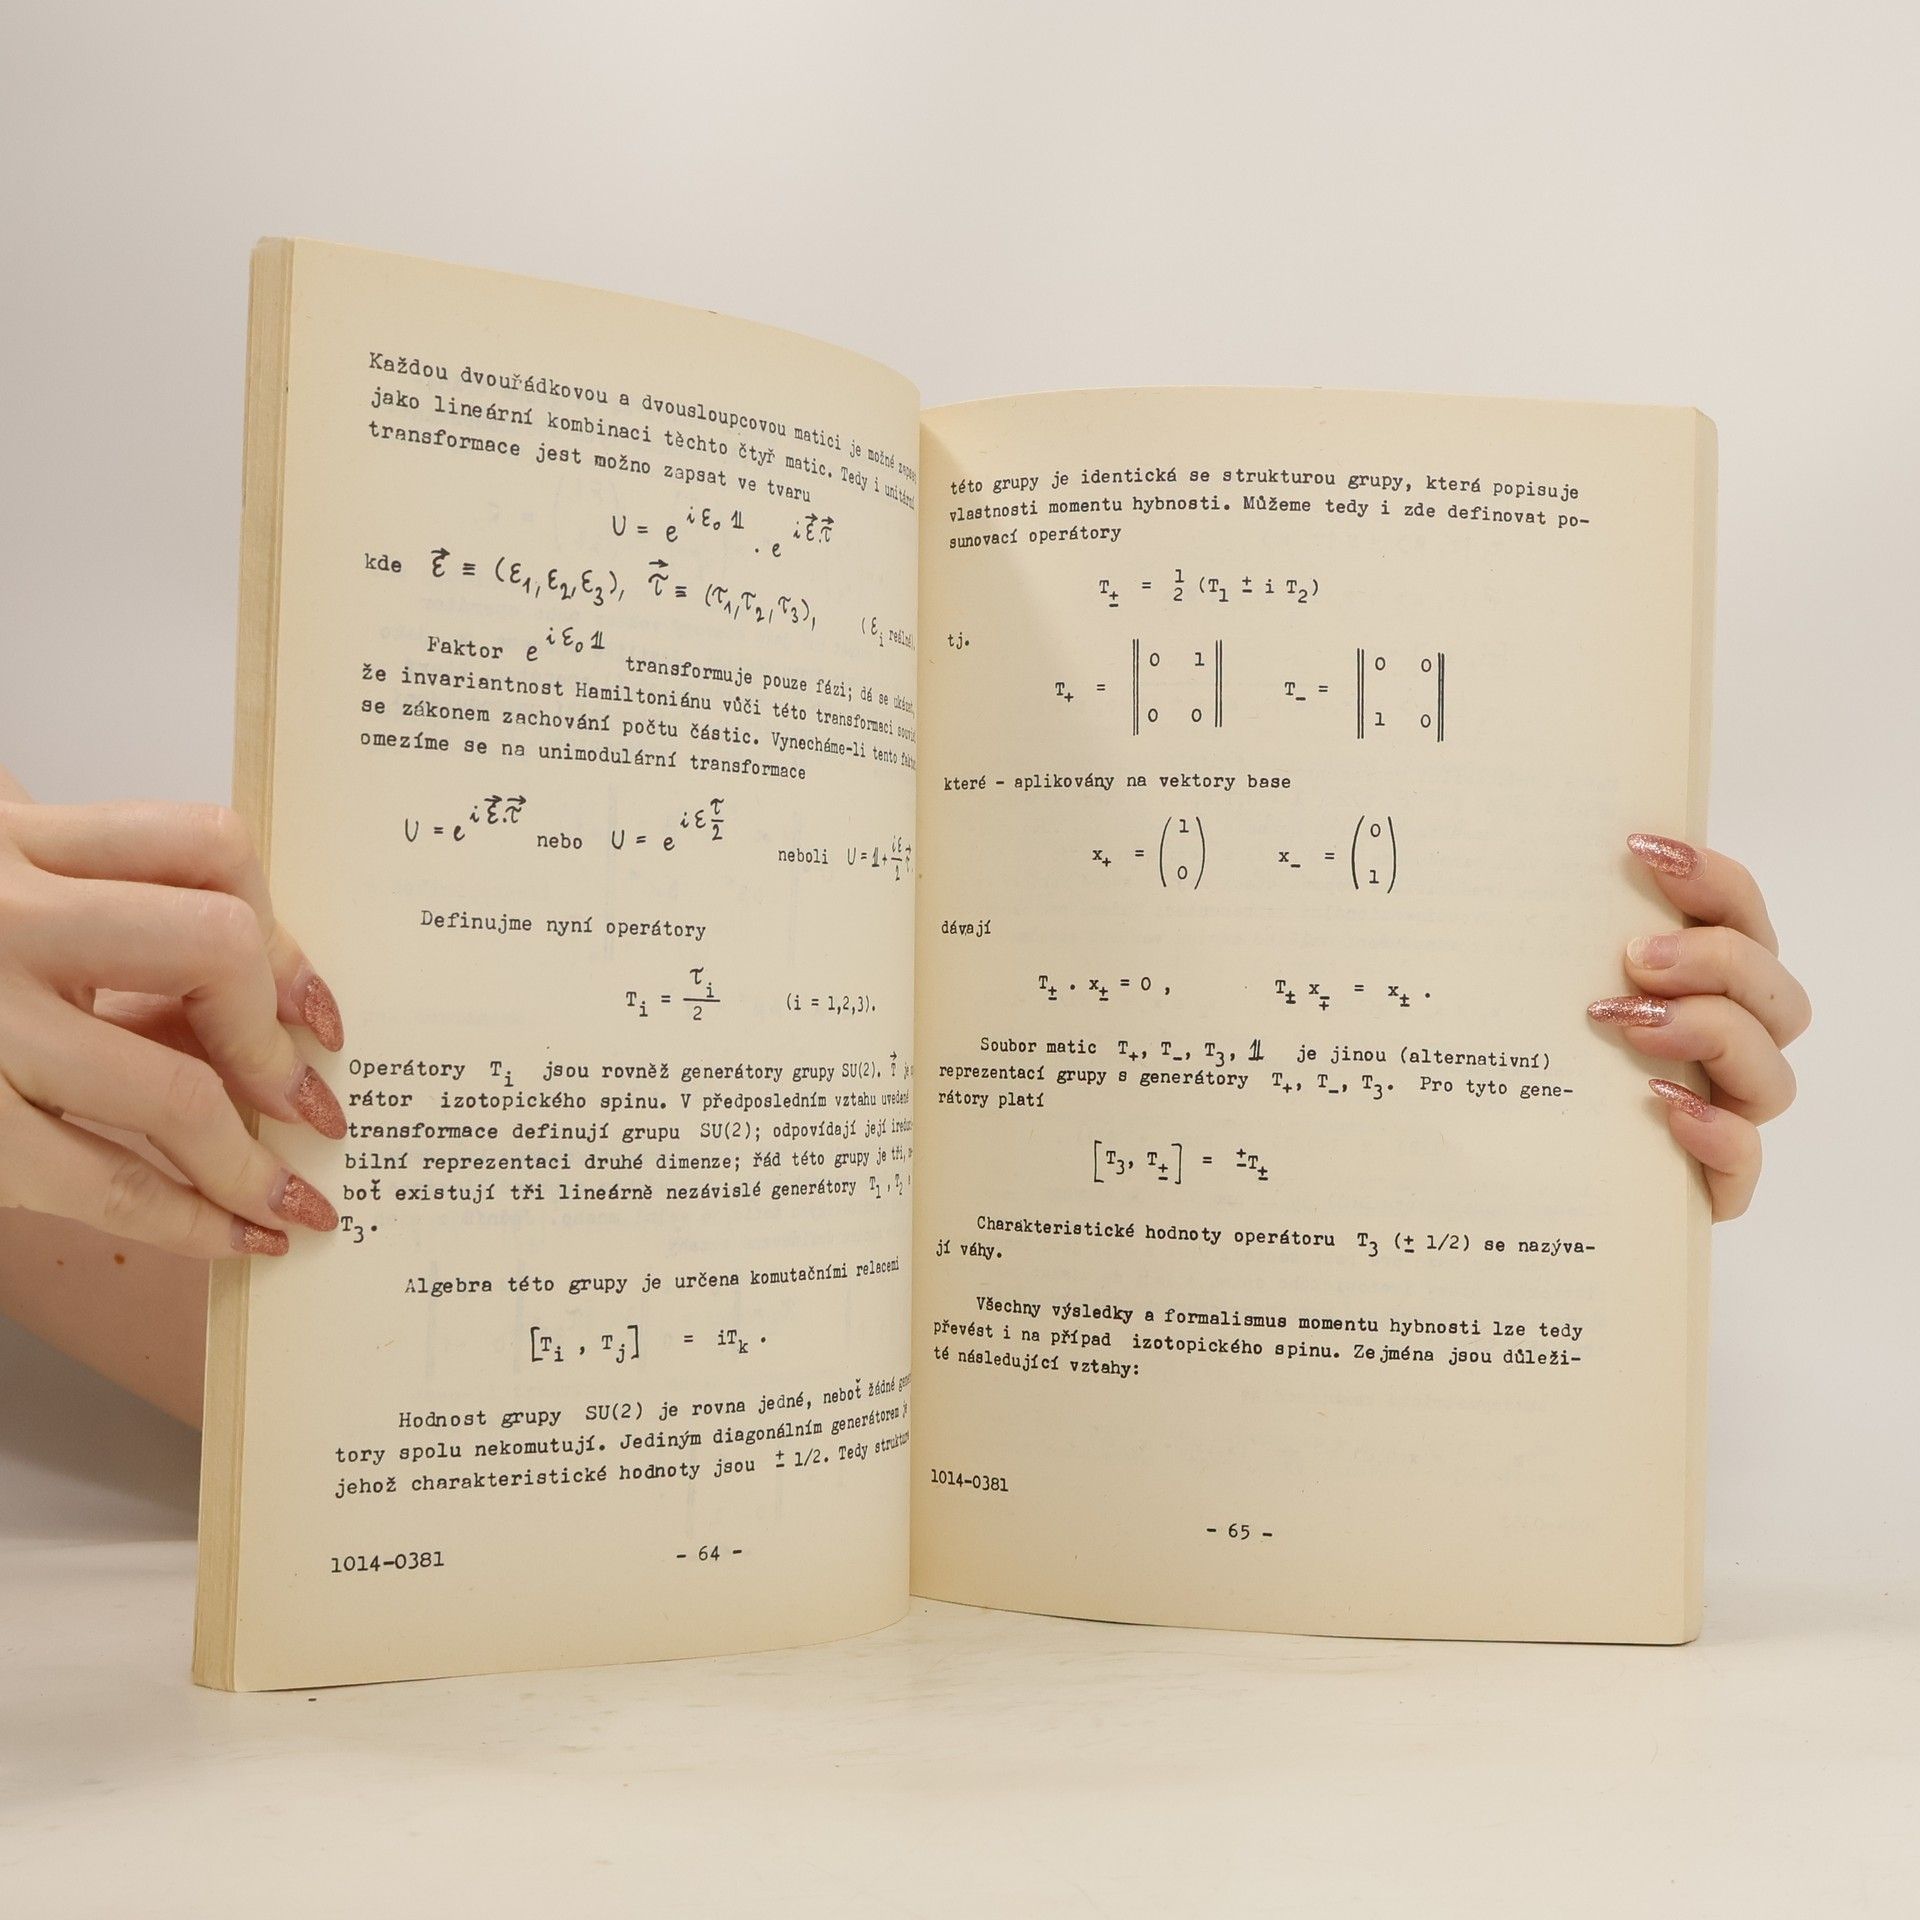 Každou dvouřádkovou a dvousloupcovou matici je možné
jako lineární kombinaci těchto čtyř matic. Tedy i unitární
transformace jest možno zapsat ve tvaru
U = e^{iε₀𝟙} · e^{iε⃗.τ⃗}
kde ε⃗ ≡ (ε₁, ε₂, ε₃), τ⃗ ≡ (τ₁, τ₂, τ₃), (εᵢ reálné).
Faktor e^{iε₀𝟙} transformuje pouze fázi; dá se
že invariantnost Hamiltoniánu vůči této transformaci
se zákonem zachování počtu částic. Vynecháme-li tento
omezíme se na unimodulární transformace
U = e^{iε⃗.τ⃗} nebo U = e^{iε τ/2} neboli U = 𝟙 + iε/2 τ⃗.
Definujme nyní operátory
Tᵢ = τᵢ/2 (i = 1,2,3).
Operátory Tᵢ jsou rovněž generátory grupy SU(2). T⃗ je
rátor izotopického spinu. V předposledním vztahu uvedené
transformace definují grupu SU(2); odpovídají její
bilní reprezentaci druhé dimenze; řád této grupy je tři,
boť existují tři lineárně nezávislé generátory T₁, T₂,
T₃.
Algebra této grupy je určena komutačními relacemi
[Tᵢ , Tⱼ] = iTₖ .
Hodnost grupy SU(2) je rovna jedné, neboť žádné
tory spolu nekomutují. Jediným diagonálním generátorem je
jehož charakteristické hodnoty jsou ± 1/2. Tedy
1014-0381
- 64 -
této grupy je identická se strukturou grupy, která popisuje
vlastnosti momentu hybnosti. Můžeme tedy i zde definovat po-
sunovací operátory
T± = 1/2 (T₁ ± i T₂)
tj.
T₊ = ‖ 0 1 ‖ T₋ = ‖ 0 0 ‖
‖ 0 0 ‖ ‖ 1 0 ‖
které - aplikovány na vektory base
x₊ = ( 1 ) x₋ = ( 0 )
( 0 ) ( 1 )
dávají
T± . x± = 0 , T± x∓ = x± .
Soubor matic T₊, T₋, T₃, 𝟙 je jinou (alternativní)
reprezentací grupy s generátory T₊, T₋, T₃. Pro tyto gene-
rátory platí
[T₃, T±] = ±T±
Charakteristické hodnoty operátoru T₃ (± 1/2) se nazýva-
jí váhy.
Všechny výsledky a formalismus momentu hybnosti lze tedy
převést i na případ izotopického spinu. Zejména jsou důleži-
té následující vztahy:
1014-0381
- 65 -